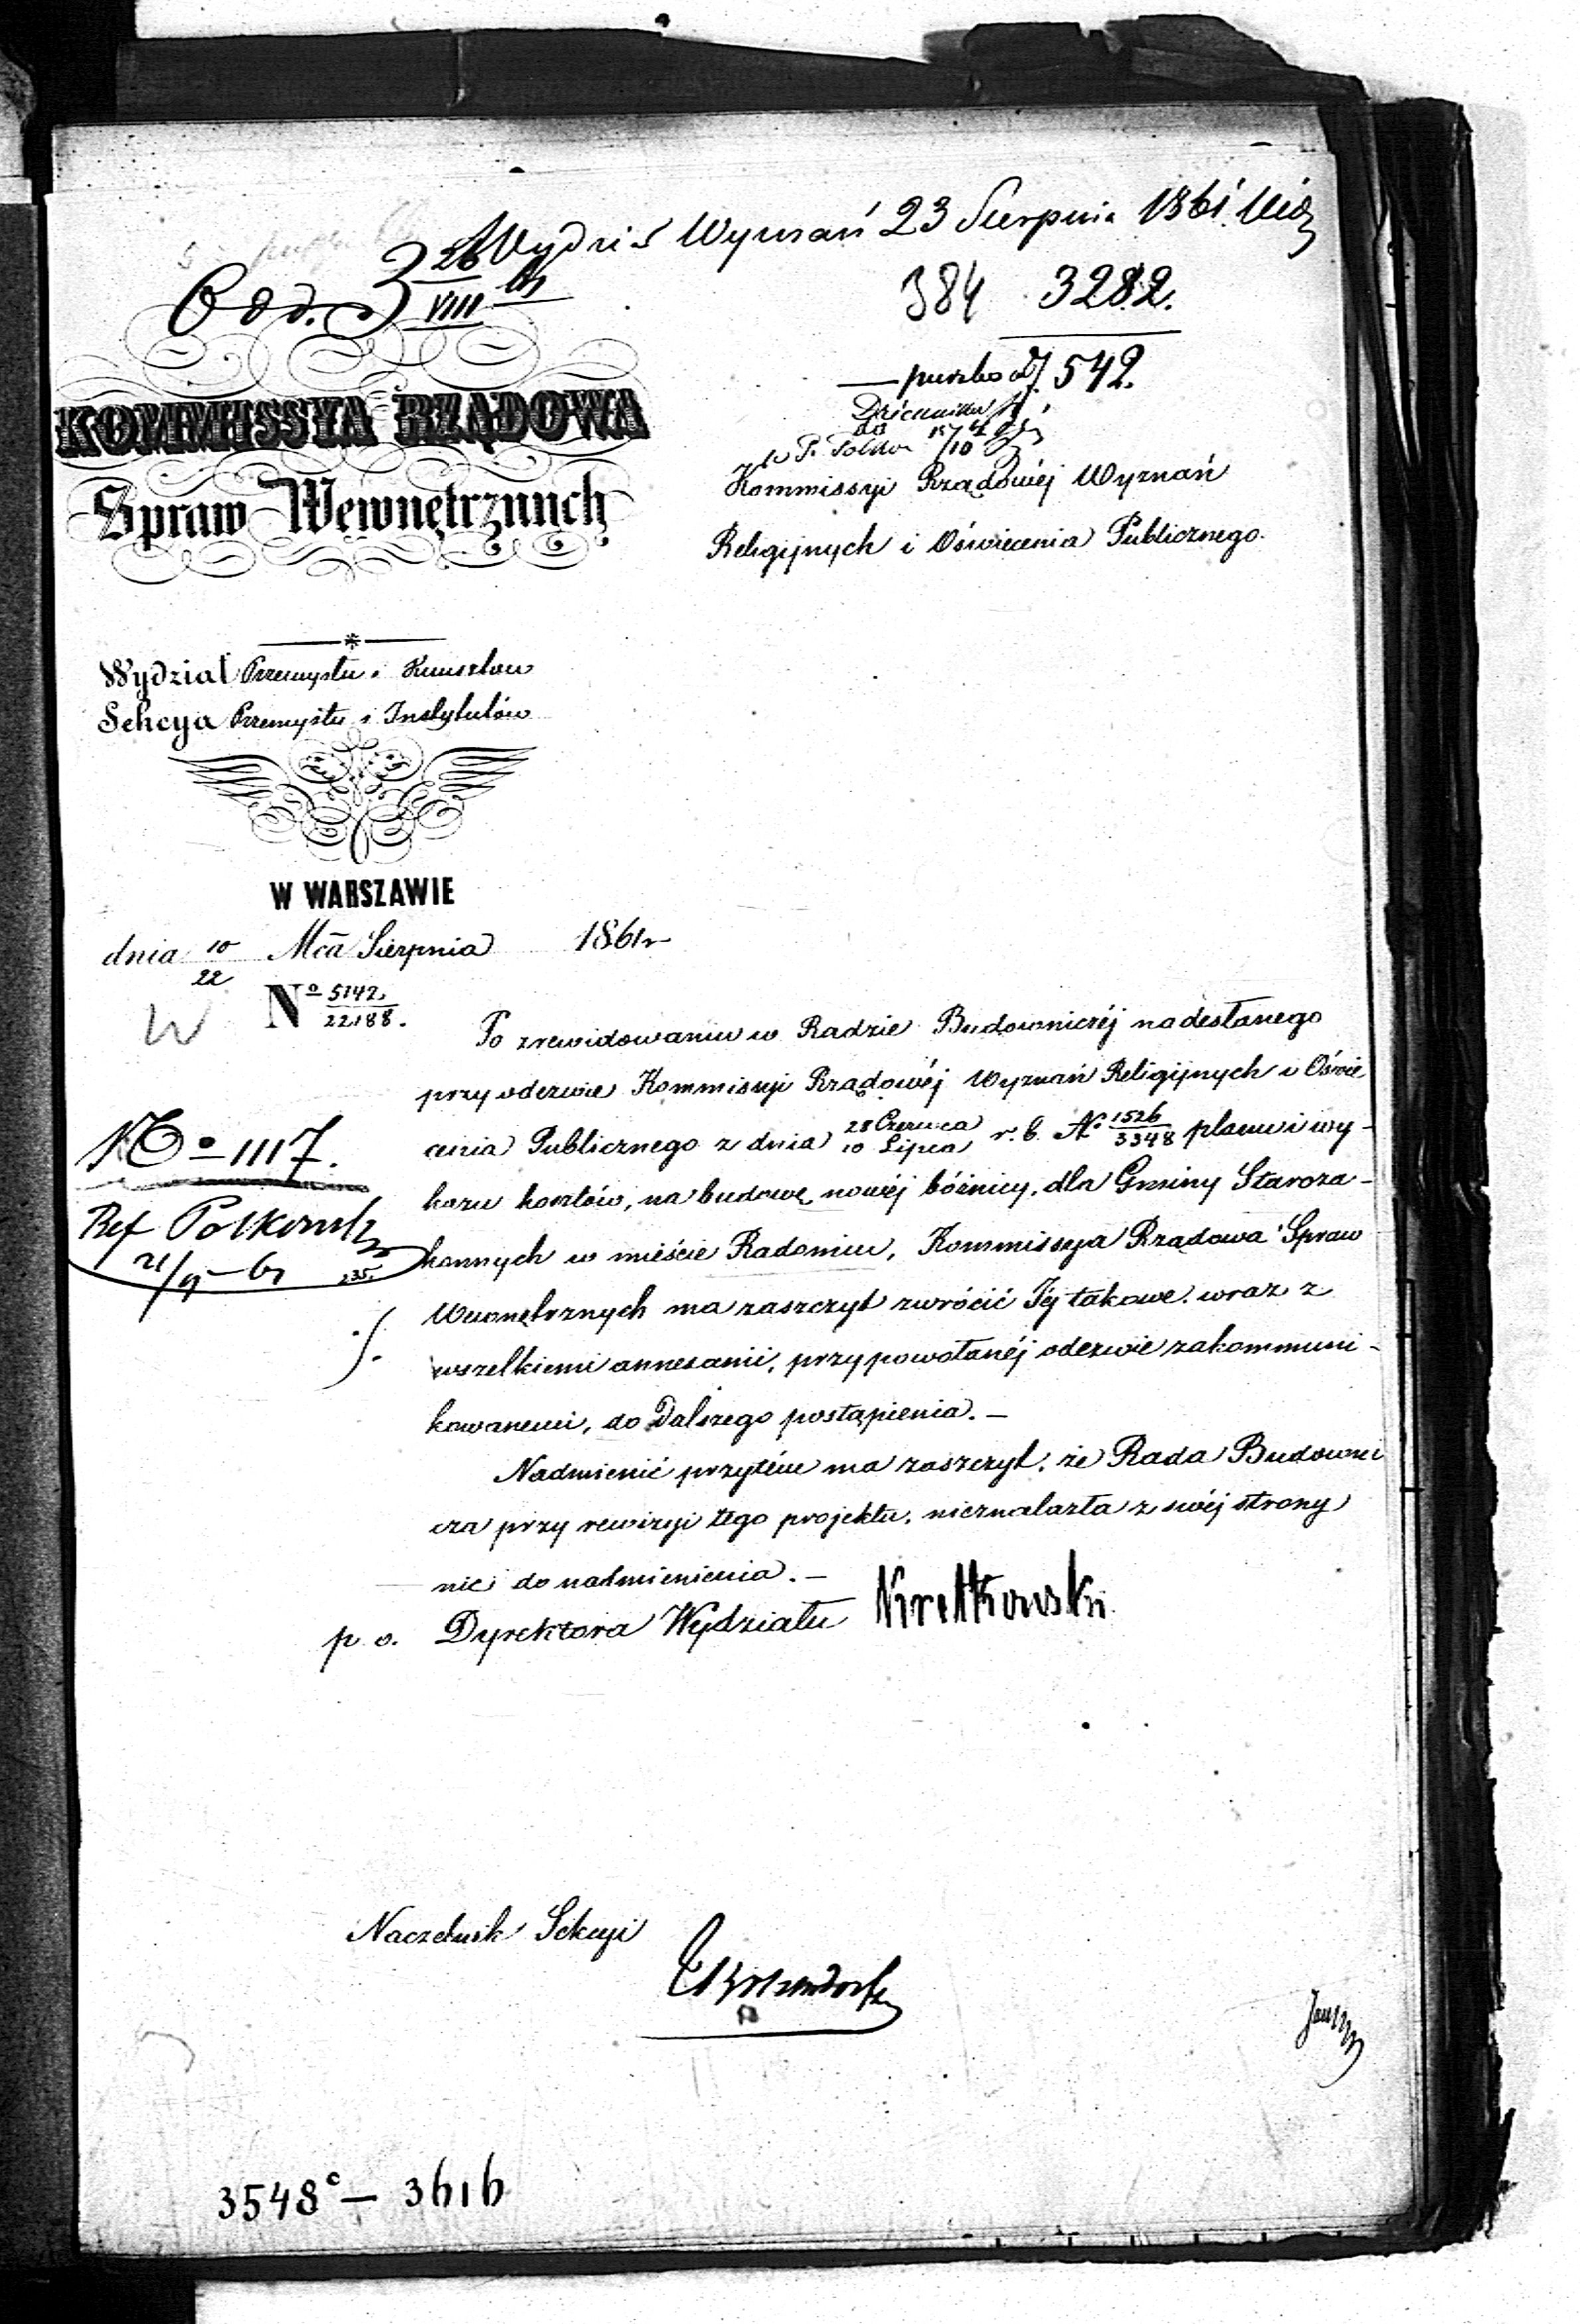 Wydział Wyznań 23 Sierpnia 1861
Odd. 3 26/VIII 61
384 3282.
542.
KOMMISSYA RZĄDOWA
Spraw Wewnętrznych
Kommissyi Rządowéj Wyznań
Religijnych i Oświecenia Publicznego.
Wydział Przemysłu i Kunsztów
Sekcya Przemysłu i Instytutów
W WARSZAWIE
dnia 10/22 Mca Sierpnia 1861 r
No 5142/22188.
Po zrewidowaniu w Radzie Budowniczéj nadesłanego
przy odezwie Kommissyi Rządowéj Wyznań Religijnych i Oświe
cenia Publicznego z dnia 28 Czerwca/10 Lipca r. b. No 1526/3348 planu i wy-
kazu kosztów, na budowę nowéj bóżnicy, dla Gminy Staroza-
konnych w mieście Radomiu, Kommissya Rządowa Spraw
Wewnętrznych ma zaszczyt zwrócić Jéj takowe wraz z
wszelkiemi annexami, przy powołanéj odezwie zakommuni-
kowanemi, do dalszego postąpienia. —
Nadmienić przytém ma zaszczyt, że Rada Budowni
cza przy rewizyi tego projektu, nieznalazła z swéj strony
nic do nadmienienia. —
No 1117.
Ref
p. o. Dyrektora Wydziału Krettkowski
Naczelnik Sekcyi
3548c — 3616